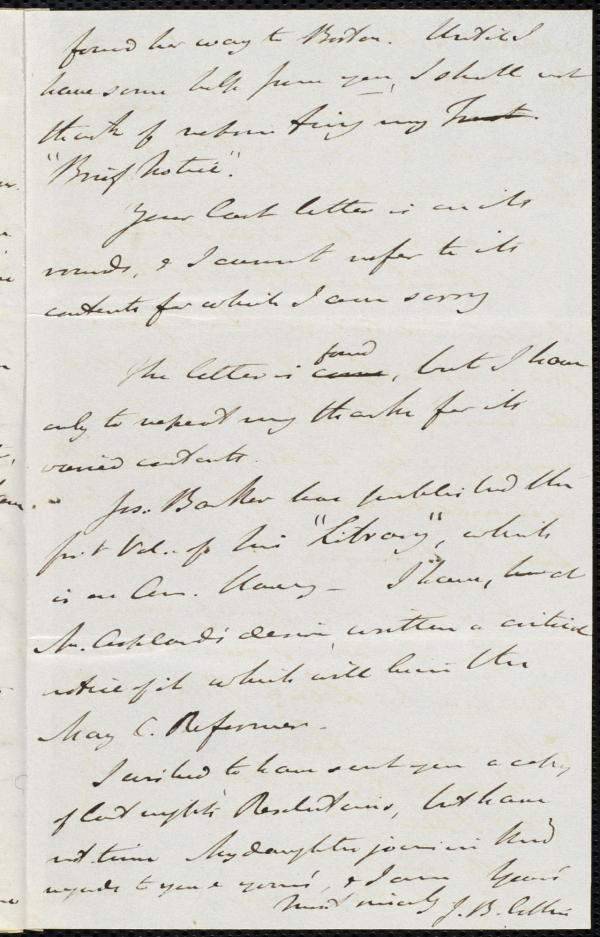 found her way to Boston. Until I
have some help from you, I shall not
think of rebon fixing my Trust.
"Brief Notice".
Your last letter is on its
rounds, & I cannot refer to its
contents for which I am sorry
The letter is came found, but I have
only to repeat my thanks for its
varied contents.
Jos. Barker has published the
first Vol. of his "Library", which
is on Chan. I have, at
Mr. Aspland's desire, written a critical
notice of it which will be in the
May C. Reformer.
I wished to have sent you a copy
of last night's Resolutions, but have
not time My daughter joins in kind
regards to you & yours, & I am Yours
most sincerely J. B. Estlin